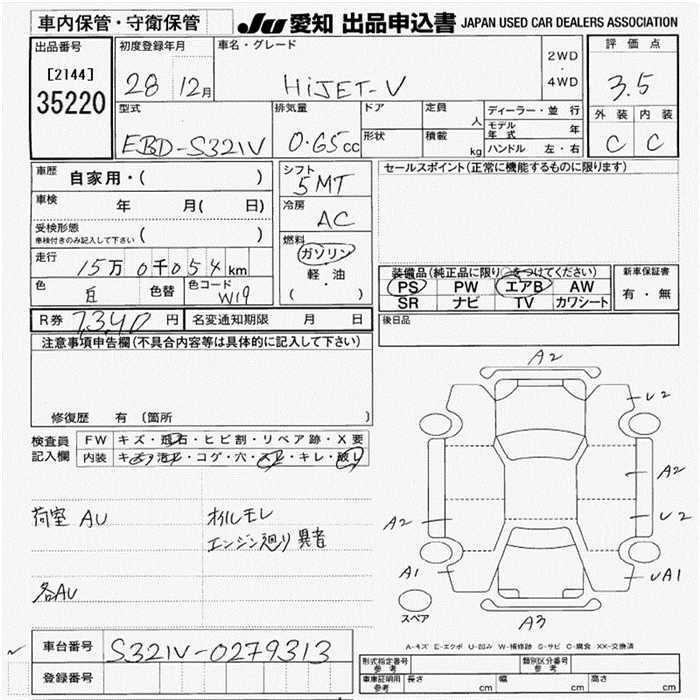 車内保管・守衛保管
JU 愛知 出品申込書 JAPAN USED CAR DEALERS ASSOCIATION
出品番号
[2144]
35220
初度登録年月
28 12月
車名・グレード
HiJET-V
2WD
・
4WD
評価点
3.5
外装 内装
C C
型式
EBD-S321V
排気量
0.65cc
ドア
形状
定員
人
積載
kg
ディーラー・並行
モデル年式 年
ハンドル 左・右
車歴 自家用・( )
車検 年 月( 日)
受検形態
車検付きのみ記入して下さい ( )
走行 15万0千054km
色
色替
色コード W19
シフト
5MT
冷房
AC
燃料
ガソリン
・
軽油
( )
セールスポイント(正常に機能するものに限ります)
装備品(純正品に限り○をつけてください)
PS PW エアB AW
SR ナビ TV カワシート
新車保証書
有・無
R券 7,340円 名変通知期限 月 日
後日品
注意事項申告欄(不具合内容等は具体的に記入して下さい)
修復歴 有 [箇所 ]
検査員
記入欄
FW キズ・飛石・ヒビ割・リペア跡・X要
内装 キズ・汚れ・コゲ・穴・スレ・キレ・破レ
荷室 AU
オイルモレ
エンジン廻り異音
各AU
A2
U2
A2
U2
A2
A1
UA1
A3
スペア
A-キズ E-エクボ U-凹み W-補修跡 S-サビ C-腐食 XX-交換済
車台番号 S321V-0279313
登録番号
形式指定番号
参考
類別区分番号
参考
車庫証明用
参考
長さ cm 幅 cm 高さ cm